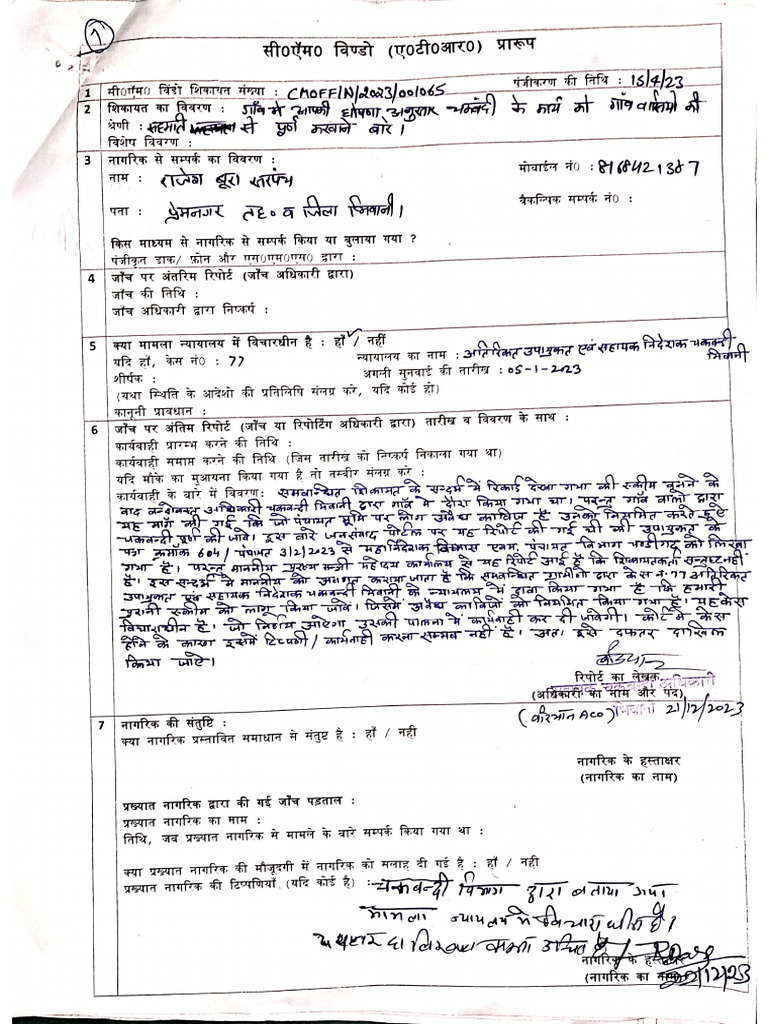 1
सी0ऍम0 विण्डो (ए0टी0आर0) प्रारूप
1 सी0ऍम0 विंडो शिकायत संख्या : CMOFF/N/2023/001065 पंजीकरण की तिथि : 15/4/23
2 शिकायत का विवरण : गाँव मे आपकी घोषणा अनुसार चकबंदी के कार्य को गाँव वासियो की
श्रेणी : सहमति से पुर्ण करवाने बारे।
विशेष विवरण :
3 नागरिक से सम्पर्क का विवरण :
नाम : राजेश बूरा सरपंच मोबाईल नं0 : 8168421387
पता : प्रेमनगर तह० व जिला भिवानी। वैकल्पिक सम्पर्क नं0 :
किस माध्यम से नागरिक से सम्पर्क किया या बुलाया गया ?
पंजीकृत डाक/ फ़ोन और एस0एम0एस0 द्वारा :
4 जाँच पर अंतरिम रिपोर्ट (जाँच अधिकारी द्वारा)
जाँच की तिथि :
जाँच अधिकारी द्वारा निष्कर्ष :
5 क्या मामला न्यायालय में विचारधीन है : हाँ / नहीं
यदि हाँ, केस नं0 : 77 न्यायालय का नाम : अतिरिकत उपायुकत एवं सहायक निदेशक चकबन्दी भिवानी
शीर्षक : अगली सुनवाई की तारीख : 05-1-2023
(यथा स्थिति के आदेशो की प्रतिलिपि संलग्न करे, यदि कोई हो)
कानूनी प्रावधान :
6 जाँच पर अंतिम रिपोर्ट (जाँच या रिपोर्टिंग अधिकारी द्वारा) तारीख व विवरण के साथ :
कार्यवाही प्रारम्भ करने की तिथि :
कार्यवाही समाप्त करने की तिथि (जिस तारीख को निष्कर्ष निकाला गया था)
यदि मौके का मुआयना किया गया है तो तस्वीर संलग्न करे :
कार्यवाही के बारे में विवरण: समबन्धित शिकायत के सन्दर्भ में रिकार्ड देखा गया की स्कीम बूनने के
बाद बन्दोबस्त अधिकारी चकबन्दी भिवानी द्वारा गाँव मे दौरा किया गया था। परन्तु गाँव वालो द्वारा
यह माँग की गई कि जो पंचायत भूमि पर लोग अवैध काबिज है उनको नियमित करते हुऐ
चकबन्दी पुर्ण की जावे। इस बारे जनसंवाद पोर्टल पर यह रिपोर्ट की गई थी की उपायुकत के
पत्र क्रमांक 604/ पंचायत 3/2/2023 से महानिदेशक विकास एवम् पंचायत विभाग चण्डीगढ़ को लिखा
गया है। परन्तु माननीय मुख्य मन्त्री महोदय कार्यालय से यह रिपोर्ट आई है कि शिकायतकर्ता सन्तुष्ट नहीं
है। इस सन्दर्भ मे माननीय को अवगत कराया जाता है कि समबन्धित ग्रामीणो द्वारा केस नं.77 अतिरिकत
उपायुकत एवं सहायक निदेशक चकबन्दी भिवानी के न्यायालय में दावा किया गया है कि हमारी
पुरानी स्कीम को लागू किया जावे। जिसमे अवैध काबिजो को नियमित किया गया है। यह केस
विचाराधीन है। जो निर्णय आऐगा उसकी पालना मे कार्यवाही कर दी जावेगी। कोर्ट मे केस
होने के कारण इसमे टिपणी/कार्यवाही करना सम्भव नहीं है। अतः इसे दफतर दाखिल
किया जाऐ।
रिपोर्ट का लेखक
सहायक चकबन्दी अधिकारी
(अधिकारी का नाम और पद)
भिवानी 21/12/2023
7 नागरिक की संतुष्टि :
क्या नागरिक प्रस्तावित समाधान से संतुष्ट है : हाँ / नही
नागरिक के हस्ताक्षर
(नागरिक का नाम)
प्रख्यात नागरिक द्वारा की गई जाँच पड़ताल :
प्रख्यात नागरिक का नाम :
तिथि, जब प्रख्यात नागरिक से मामले के बारे सम्पर्क किया गया था :
क्या प्रख्यात नागरिक की मौजूदगी में नागरिक को सलाह दी गई है : हाँ / नही
प्रख्यात नागरिक की टिप्पणियाँ (यदि कोई है) : चकबन्दी विभाग द्वारा बताया गया
मामला न्यायलय मे विचाराधीन है।
उचित है
नागरिक के हस्ताक्षर
(नागरिक का नाम) /12/23